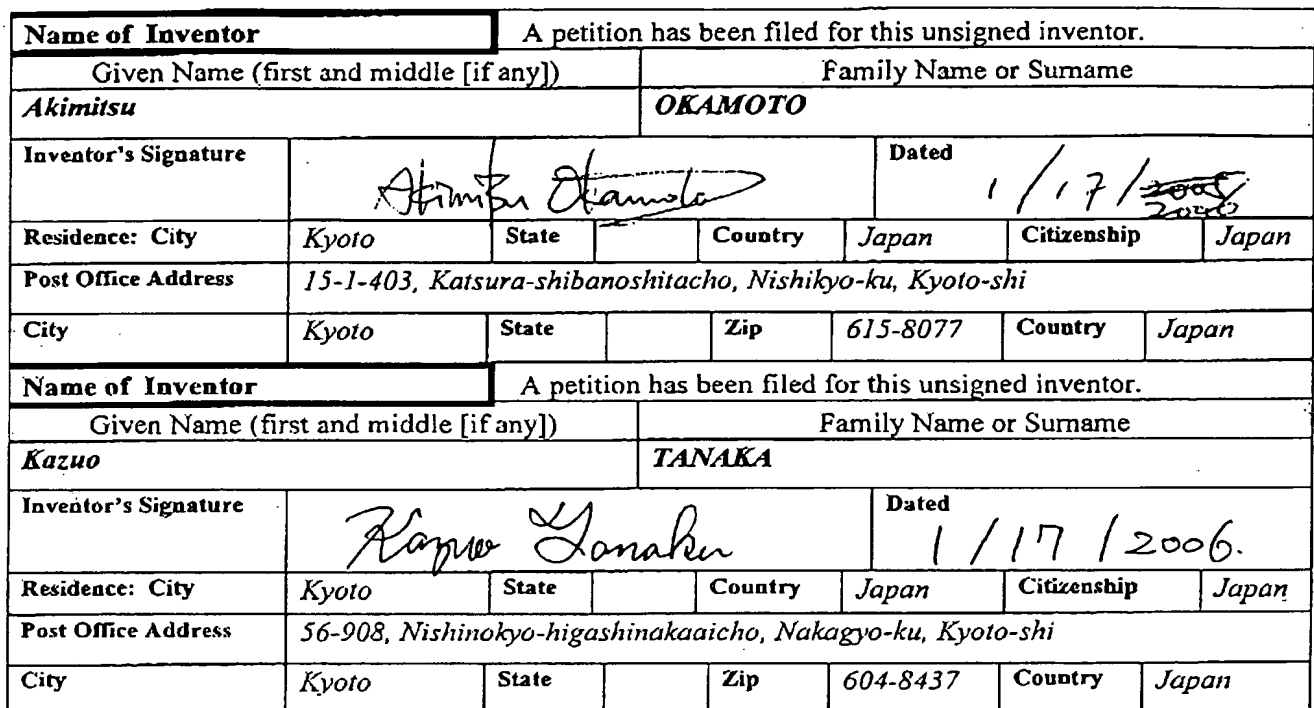 Name of Inventor A petition has been filed for this unsigned inventor.
Given Name (first and middle [if any]) Family Name or Surname
Akimitsu OKAMOTO
Inventor's Signature Akimitsu Okamoto Dated 1/17/2005
2006
Residence: City Kyoto State Country Japan Citizenship Japan
Post Office Address 15-1-403, Katsura-shibanoshitacho, Nishikyo-ku, Kyoto-shi
City Kyoto State Zip 615-8077 Country Japan
Name of Inventor A petition has been filed for this unsigned inventor.
Given Name (first and middle [if any]) Family Name or Surname
Kazuo TANAKA
Inventor's Signature Kazuo Tanaka Dated 1/17/2006.
Residence: City Kyoto State Country Japan Citizenship Japan
Post Office Address 56-908, Nishinokyo-higashinakaaicho, Nakagyo-ku, Kyoto-shi
City Kyoto State Zip 604-8437 Country Japan